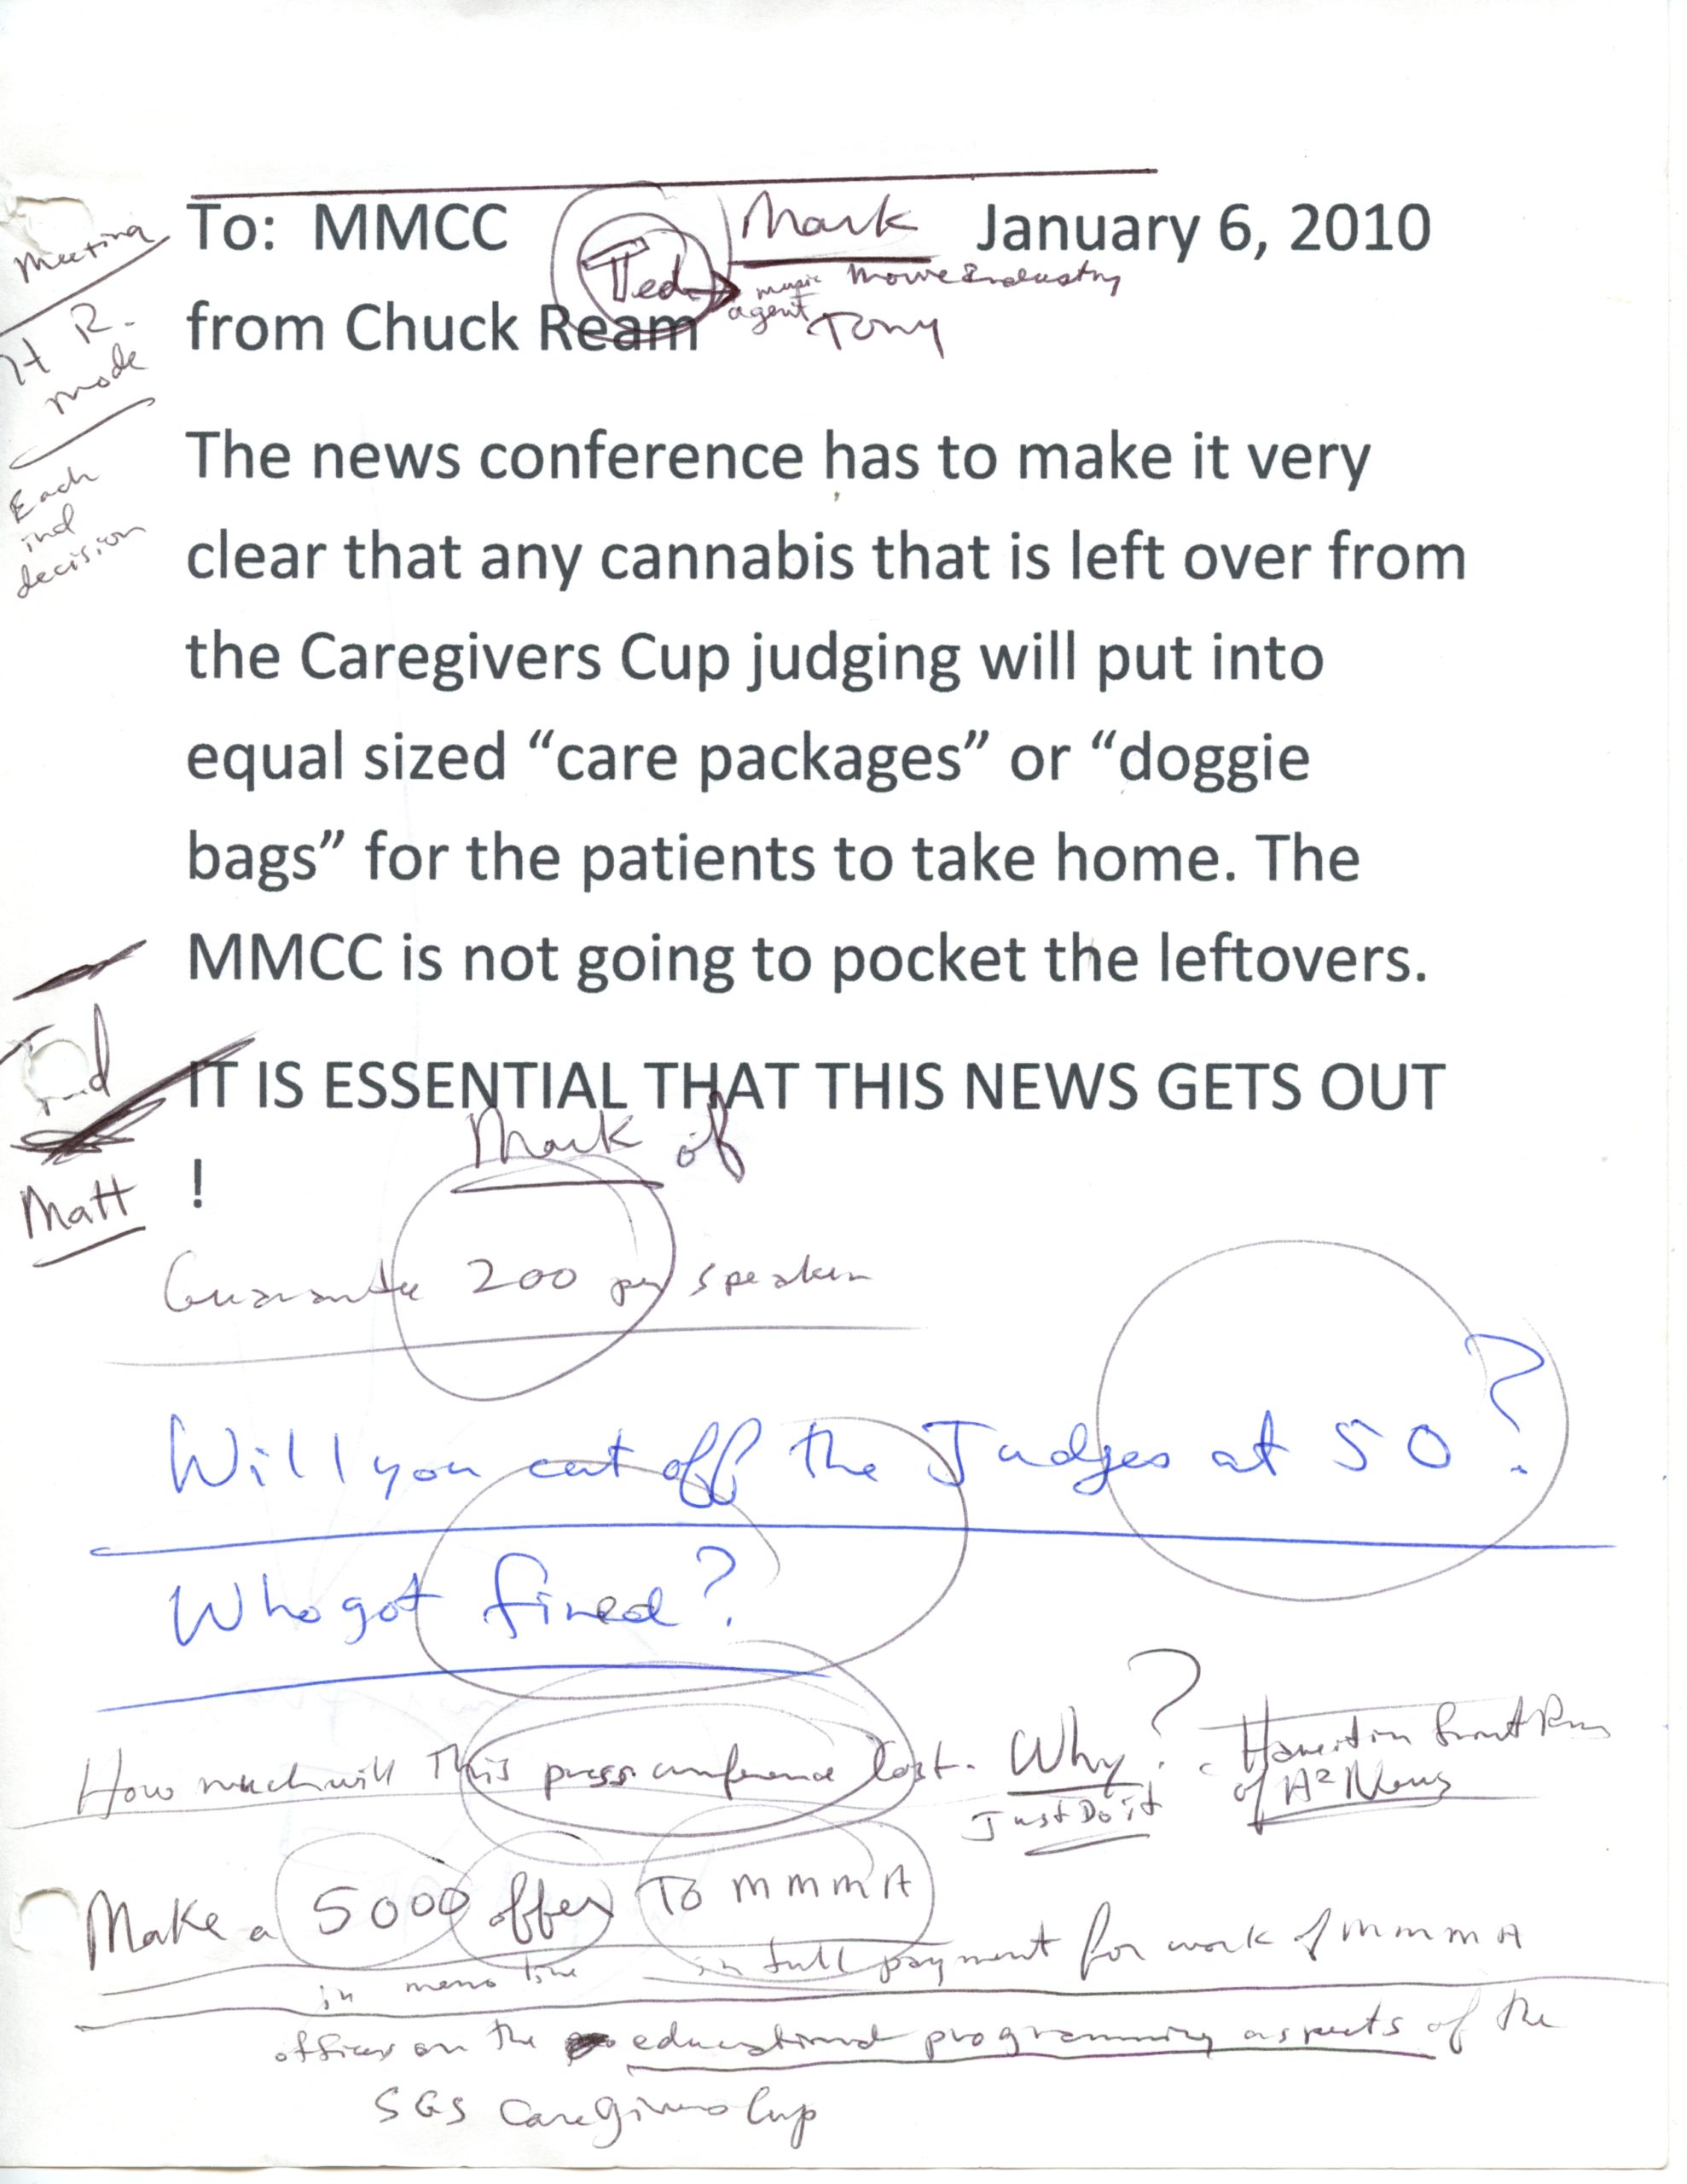 To: MMCC Ted Mark January 6, 2010
music agent Movie Industry
from Chuck Ream Tony
Meeting
H R.
mode
Each
ind
decision
The news conference has to make it very
clear that any cannabis that is left over from
the Caregivers Cup judging will put into
equal sized “care packages” or “doggie
bags” for the patients to take home. The
MMCC is not going to pocket the leftovers.
IT IS ESSENTIAL THAT THIS NEWS GETS OUT
!
Matt
Mark of
Guarantee 200 per speaker
Will you cut off the Judges at 50?
Who got fired?
How much will This press conference Cost. Why?
Just Do it
of A2 News
Make a 5000 offer To MMMA
in memo line in full payment for work of MMMA
officers on the educational programming aspects of the
SGS Caregivers Cup